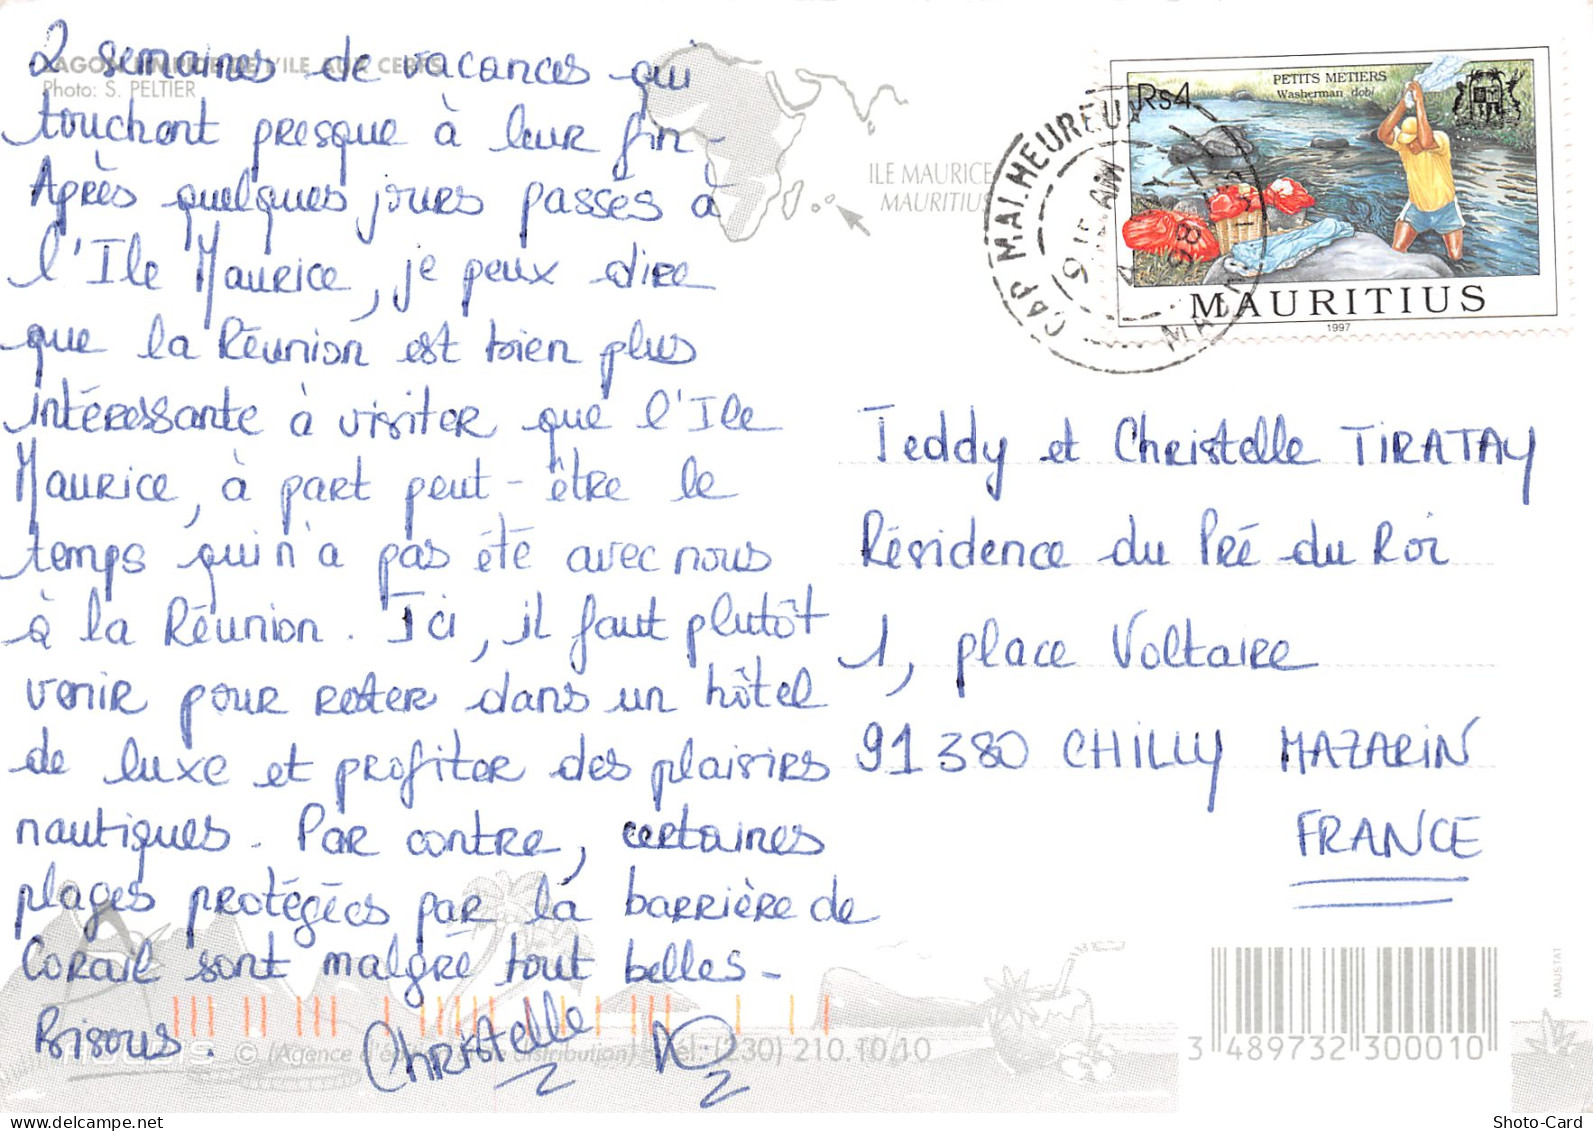 LAGON LIMPIDE DE L'ILE AUX CERFS
Photo: S. PELTIER
2 semaines de vacances qui
touchent presque à leur fin -
Après quelques jours passés à
l'Ile Maurice, je peux dire
que la Réunion est bien plus
intéressante à visiter que l'Ile
Maurice, à part peut-être le
temps qui n'a pas été avec nous
à la Réunion. Ici, il faut plutôt
venir pour rester dans un hôtel
de luxe et profiter des plaisirs
nautiques. Par contre, certaines
plages protégées par la barrière de
Corail sont malgré tout belles -
Bisous.
Christelle
© (Agence d'édition et de distribution) Tél: (230) 210.10/10
ILE MAURICE
MAURITIUS
CAP MALHEUREUX
MAURITIUS
PETITS METIERS
Washerman dobi
Rs4
MAURITIUS
1997
Teddy et Christelle TIRATAY
Résidence du Pré du Roi
1, place Voltaire
91380 CHILLY MAZARIN
FRANCE
MAUSTAT
3 489732 300010
Shoto-Card